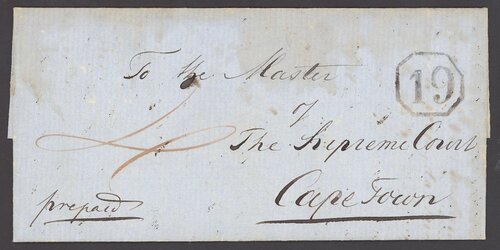 To the Master
19
of
The Supreme Court
Cape Town
4
prepaid